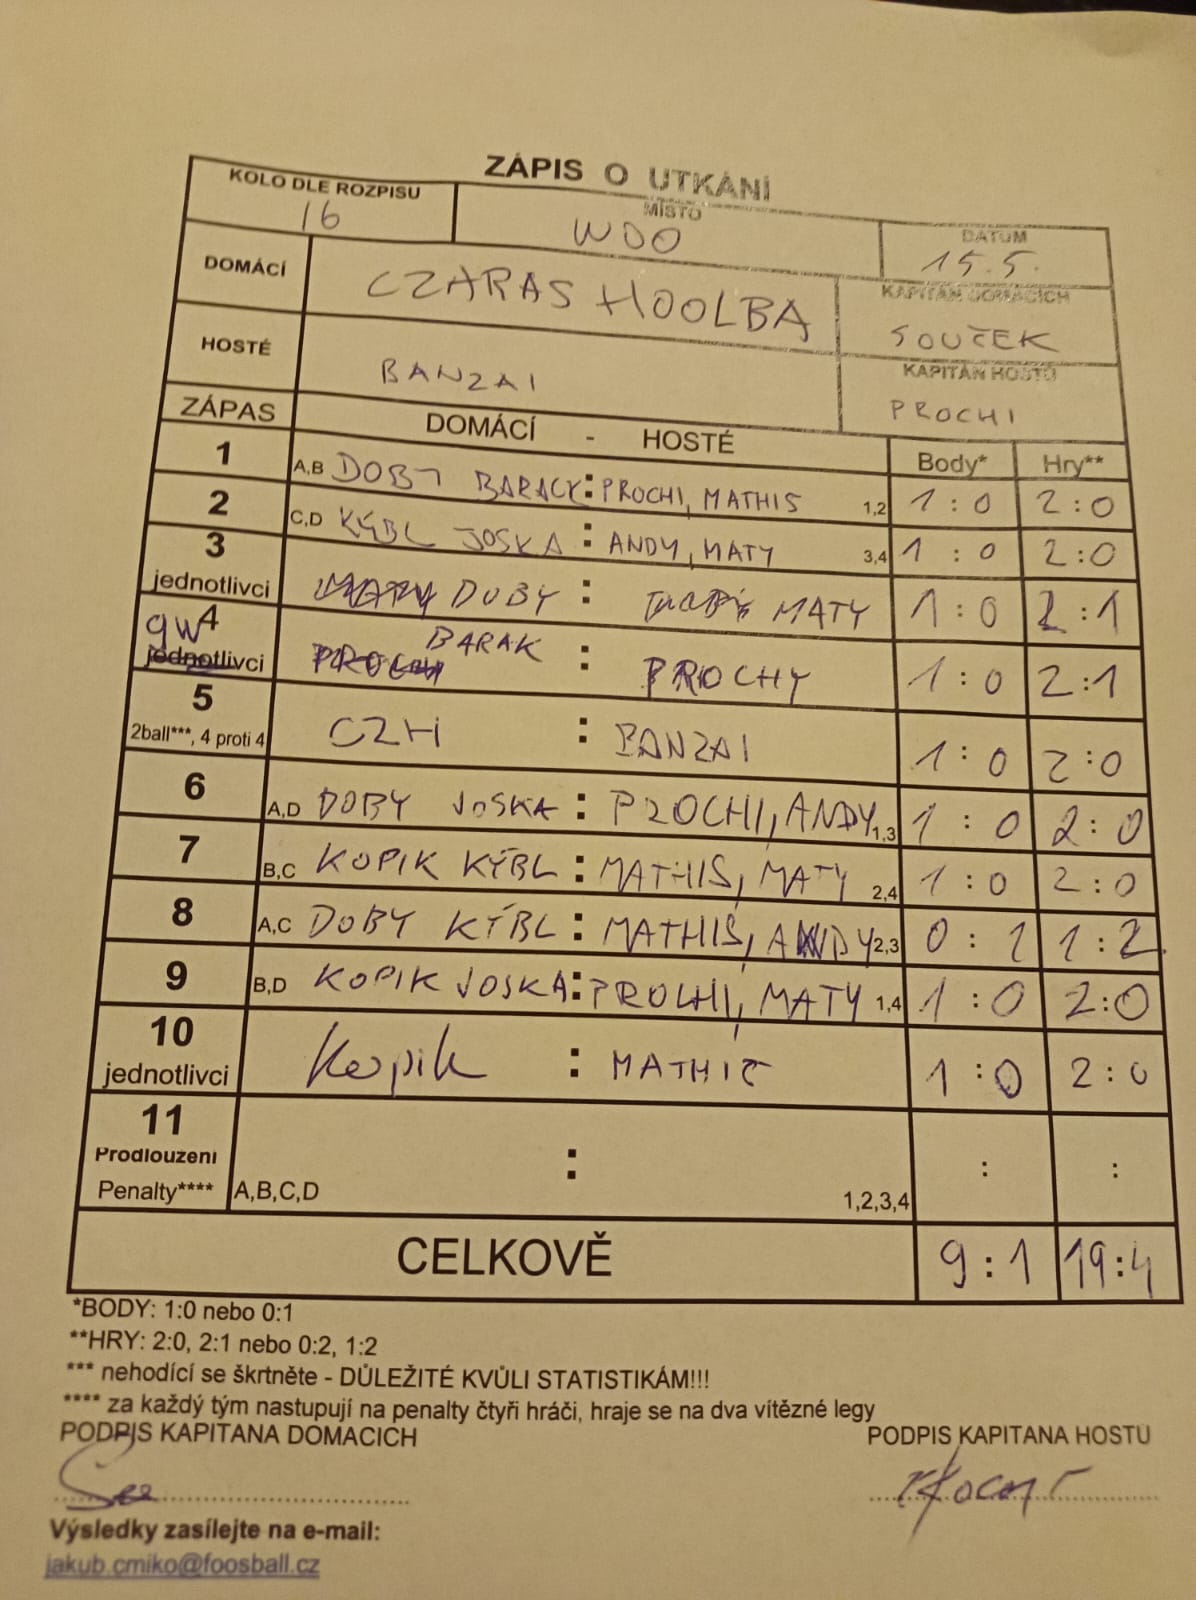 ZÁPIS O UTKÁNÍ
KOLO DLE ROZPISU
16
MÍSTO
WOO
DATUM
15.5.
DOMÁCÍ
CZARAS HOOLBA
KAPITÁN DOMÁCÍCH
SOUČEK
HOSTÉ
BANZAI
KAPITÁN HOSTŮ
PROCHI
ZÁPAS DOMÁCÍ - HOSTÉ Body* Hry**
1 A,B DOBY BARACK : PROCHI, MATHIS 1,2 1 : 0 2 : 0
2 C,D KÝBL JOSKA : ANDY, MATY 3,4 1 : 0 2 : 0
3 jednotlivci DOBY : MATY 1 : 0 2 : 1
gw4 jednotlivci BARAK : PROCHY 1 : 0 2 : 1
5 2ball***, 4 proti 4 CZH : BANZAI 1 : 0 2 : 0
6 A,D DOBY JOSKA : PROCHI, ANDY 1,3 1 : 0 2 : 0
7 B,C KOPIK KÝBL : MATHIS, MATY 2,4 1 : 0 2 : 0
8 A,C DOBY KÝBL : MATHIS, ANDY 2,3 0 : 1 1 : 2
9 B,D KOPIK JOSKA : PROCHI, MATY 1,4 1 : 0 2 : 0
10 jednotlivci Kopik : MATHIS 1 : 0 2 : 0
11
Prodlouzeni : : :
Penalty**** A,B,C,D 1,2,3,4
CELKOVĚ 9 : 1 19 : 4
*BODY: 1:0 nebo 0:1
**HRY: 2:0, 2:1 nebo 0:2, 1:2
*** nehodící se škrtněte - DŮLEŽITÉ KVŮLI STATISTIKÁM!!!
**** za každý tým nastupují na penalty čtyři hráči, hraje se na dva vítězné legy
PODPIS KAPITANA DOMACICH PODPIS KAPITANA HOSTU
Výsledky zasílejte na e-mail:
jakub.cmiko@foosball.cz